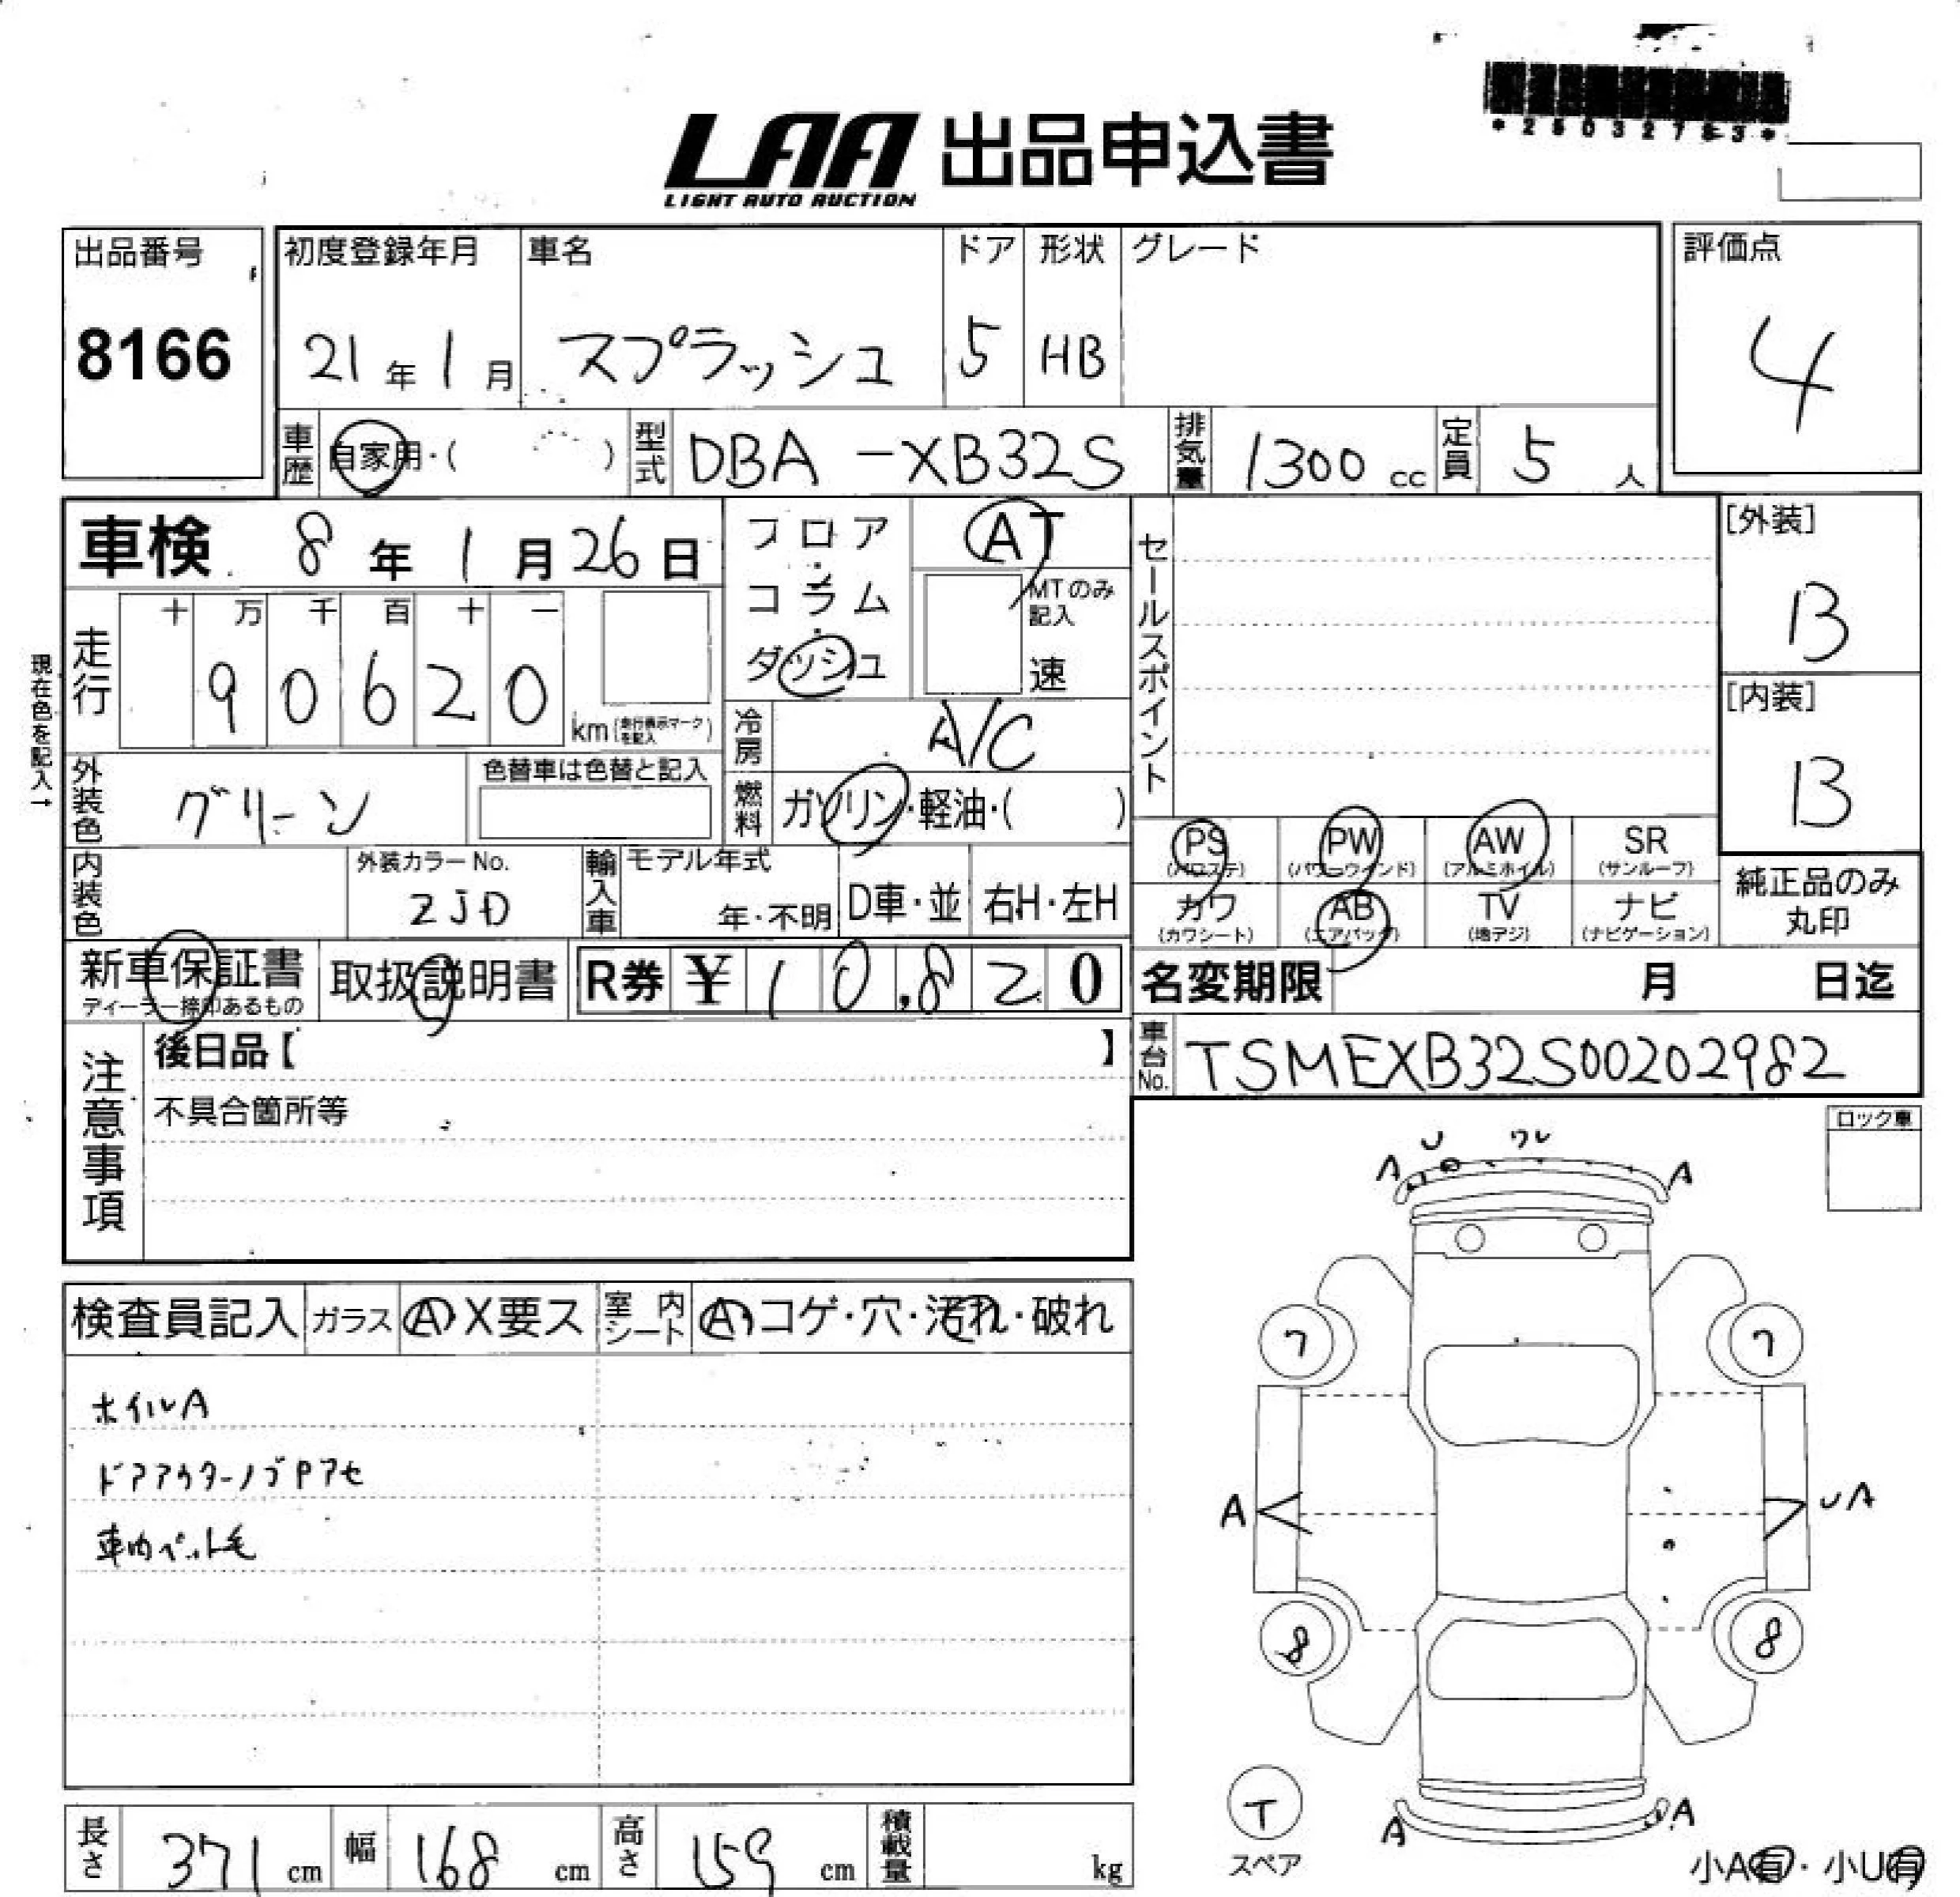 LAA 出品申込書
LIGHT AUTO AUCTION
出品番号
8166
初度登録年月
21年1月
車名
スプラッシュ
ドア
5
形状
HB
グレード
評価点
4
車歴 自家用・( )
型式 DBA-XB32S
排気量 1300 cc
定員 5 人
車検 8年1月26日
フロア・コラム・ダッシュ
AT
MTのみ記入
速
セールスポイント
[外装]
B
[内装]
B
現在色を記入→
走行
十 万 千 百 十 一
9 0 6 2 0
km(走行表示マークを記入)
冷房 A/C
外装色 グリーン
色替車は色替と記入
燃料 ガソリン・軽油・( )
PS (パワステ)
PW (パワーウインド)
AW (アルミホイル)
SR (サンルーフ)
カワ (カワシート)
AB (エアバッグ)
TV (地デジ)
ナビ (ナビゲーション)
純正品のみ丸印
内装色
外装カラーNo.
ZJD
輸入車
モデル年式
年・不明
D車・並
右H・左H
新車保証書
ディーラー捺印あるもの
取扱説明書
R券 ¥ 10,820
名変期限 月 日迄
注意事項
後日品【 】
不具合箇所等
車台No. TSMEXB32S00202982
ロック車
検査員記入
ガラス A X要ス
室内シート A コゲ・穴・汚れ・破れ
ホイルA
ドアアウターノブPアセ
車内ペット毛
U ワレ
A A
7 7
A UA
8 8
T
スペア
A A
小A有・小U有
長さ 371 cm
幅 168 cm
高さ 159 cm
積載量 kg